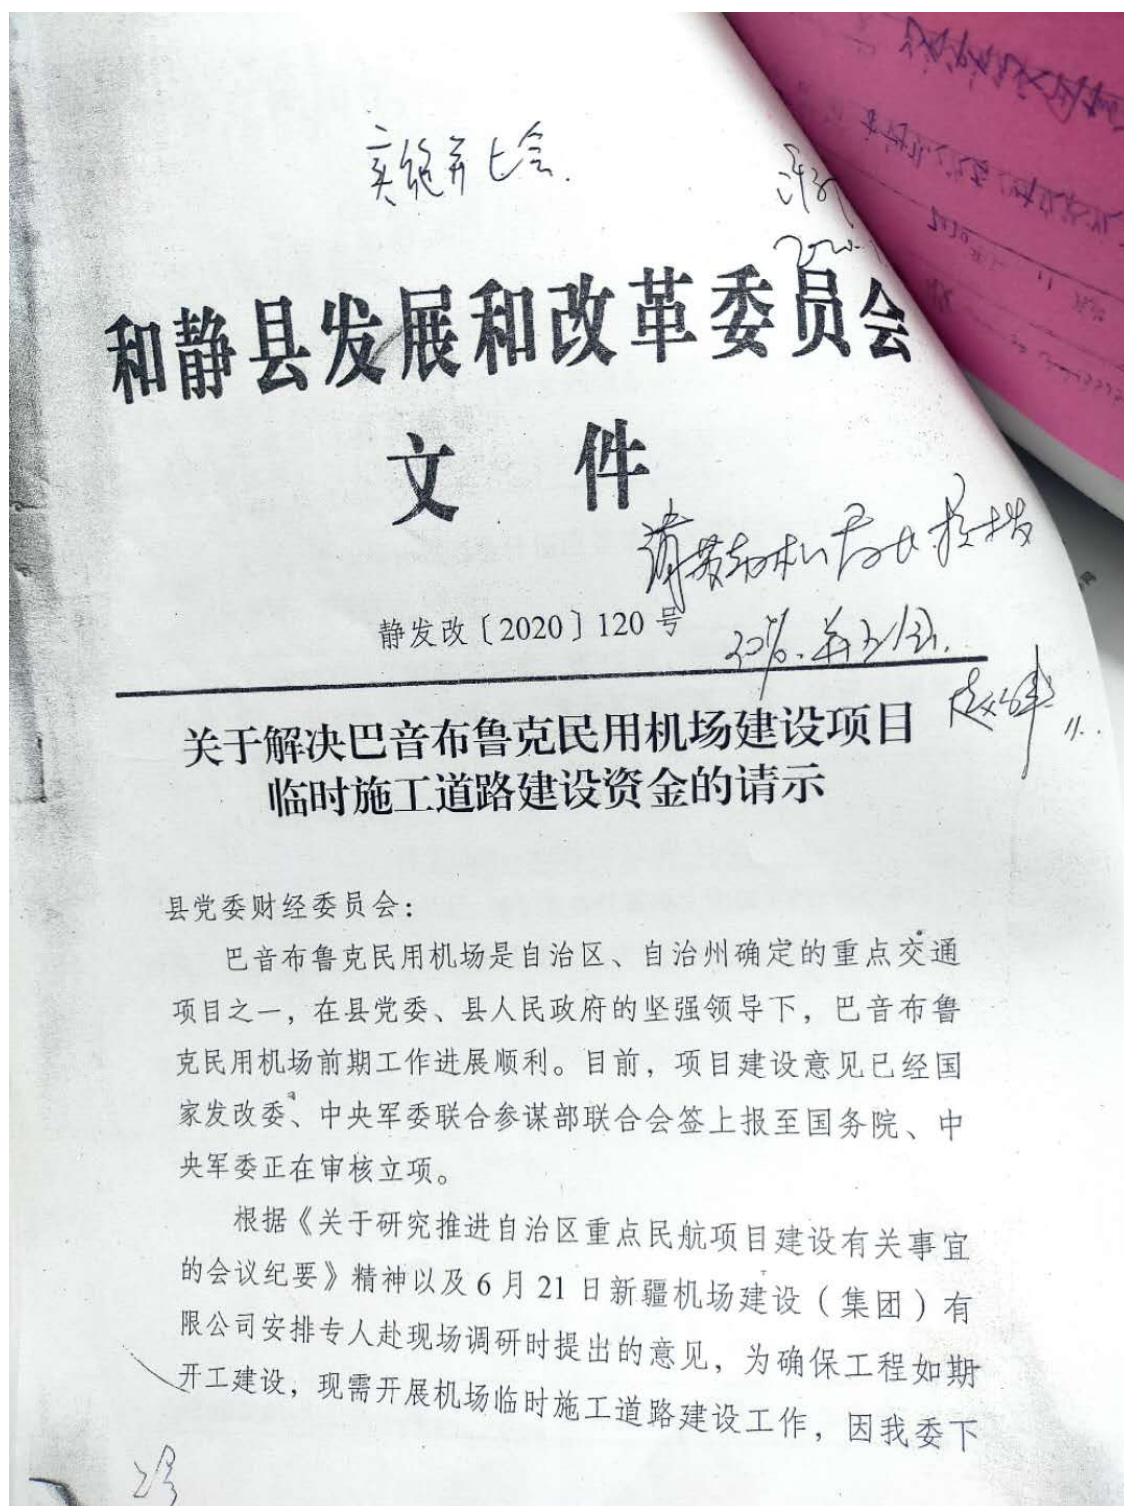 和静县发展和改革委员会
文 件
静发改〔2020〕120 号
关于解决巴音布鲁克民用机场建设项目
临时施工道路建设资金的请示
县党委财经委员会：
巴音布鲁克民用机场是自治区、自治州确定的重点交通
项目之一，在县党委、县人民政府的坚强领导下，巴音布鲁
克民用机场前期工作进展顺利。目前，项目建设意见已经国
家发改委、中央军委联合参谋部联合会签上报至国务院、中
央军委正在审核立项。
根据《关于研究推进自治区重点民航项目建设有关事宜
的会议纪要》精神以及 6 月 21 日新疆机场建设（集团）有
限公司安排专人赴现场调研时提出的意见，为确保工程如期
开工建设，现需开展机场临时施工道路建设工作，因我委下